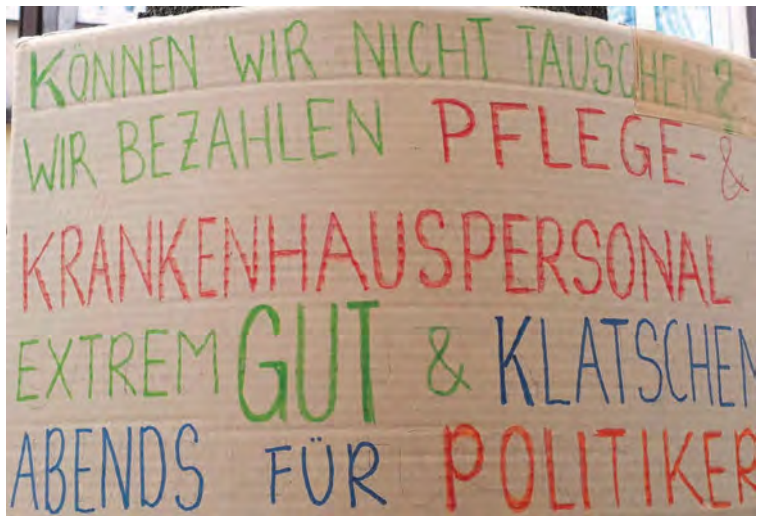 KÖNNEN WIR NICHT TAUSCHEN?
WIR BEZAHLEN PFLEGE- &
KRANKENHAUSPERSONAL
EXTREM GUT & KLATSCHEN
ABENDS FÜR POLITIKER